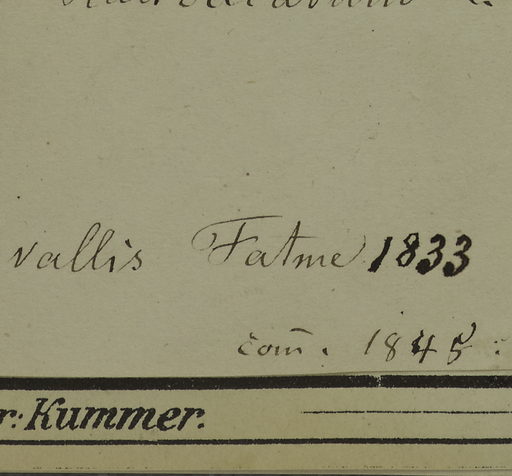 vallis Fatme 1833
com̄. 1845:
r: Kummer.